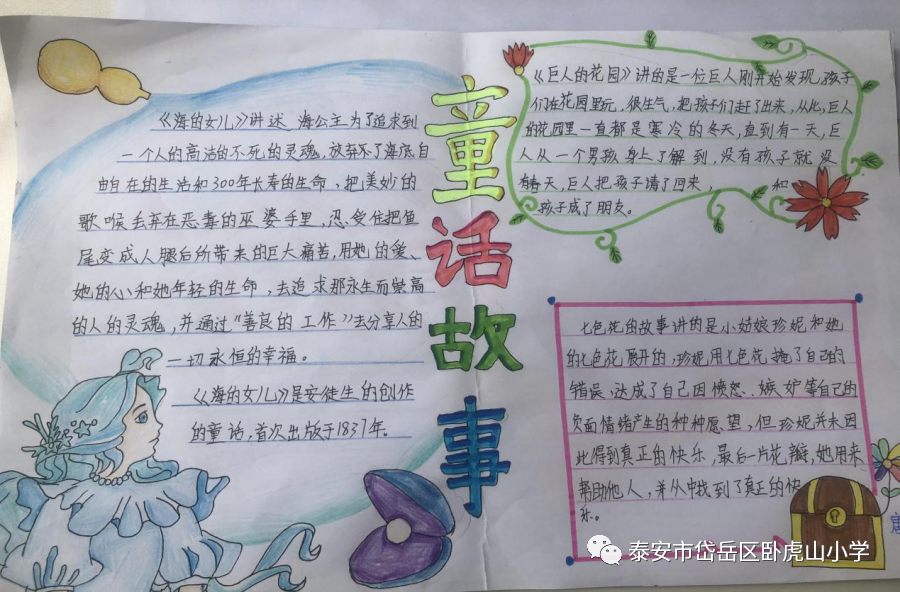 《海的女儿》讲述 海公主为了追求到
一个人的高洁的不死的灵魂，放弃了海底自
由自在的生活和300年长寿的生命，把美妙的
歌喉丢弃在恶毒的巫婆手里，忍受住把鱼
尾变成人腿后所带来的巨大痛苦，用她的爱、
她的心和她年轻的生命，去追求那永生而崇高
的人的灵魂，并通过“善良的工作”去分享人的
一切永恒的幸福。
《海的女儿》是安徒生的创作
的童话，首次出版于1837年。
童话故事
《巨人的花园》讲的是一位巨人刚开始发现，孩子
们在花园里玩，很生气，把孩子们赶了出来，从此，巨人
的花园里一直都是寒冷的冬天，直到有一天，巨
人从一个男孩身上了解到，没有孩子就没
有春天，巨人把孩子请了回来， 和
孩子成了朋友。
七色花的故事讲的是小姑娘珍妮和她
的七色花展开的，珍妮用七色花掩了自己的
错误，达成了自己因愤怒、嫉妒等自己的
负面情绪产生的种种愿望，但珍妮并未因
此得到真正的快乐，最后一片花瓣，她用来
帮助他人，并从中找到了真正的快
乐。
泰安市岱岳区卧虎山小学